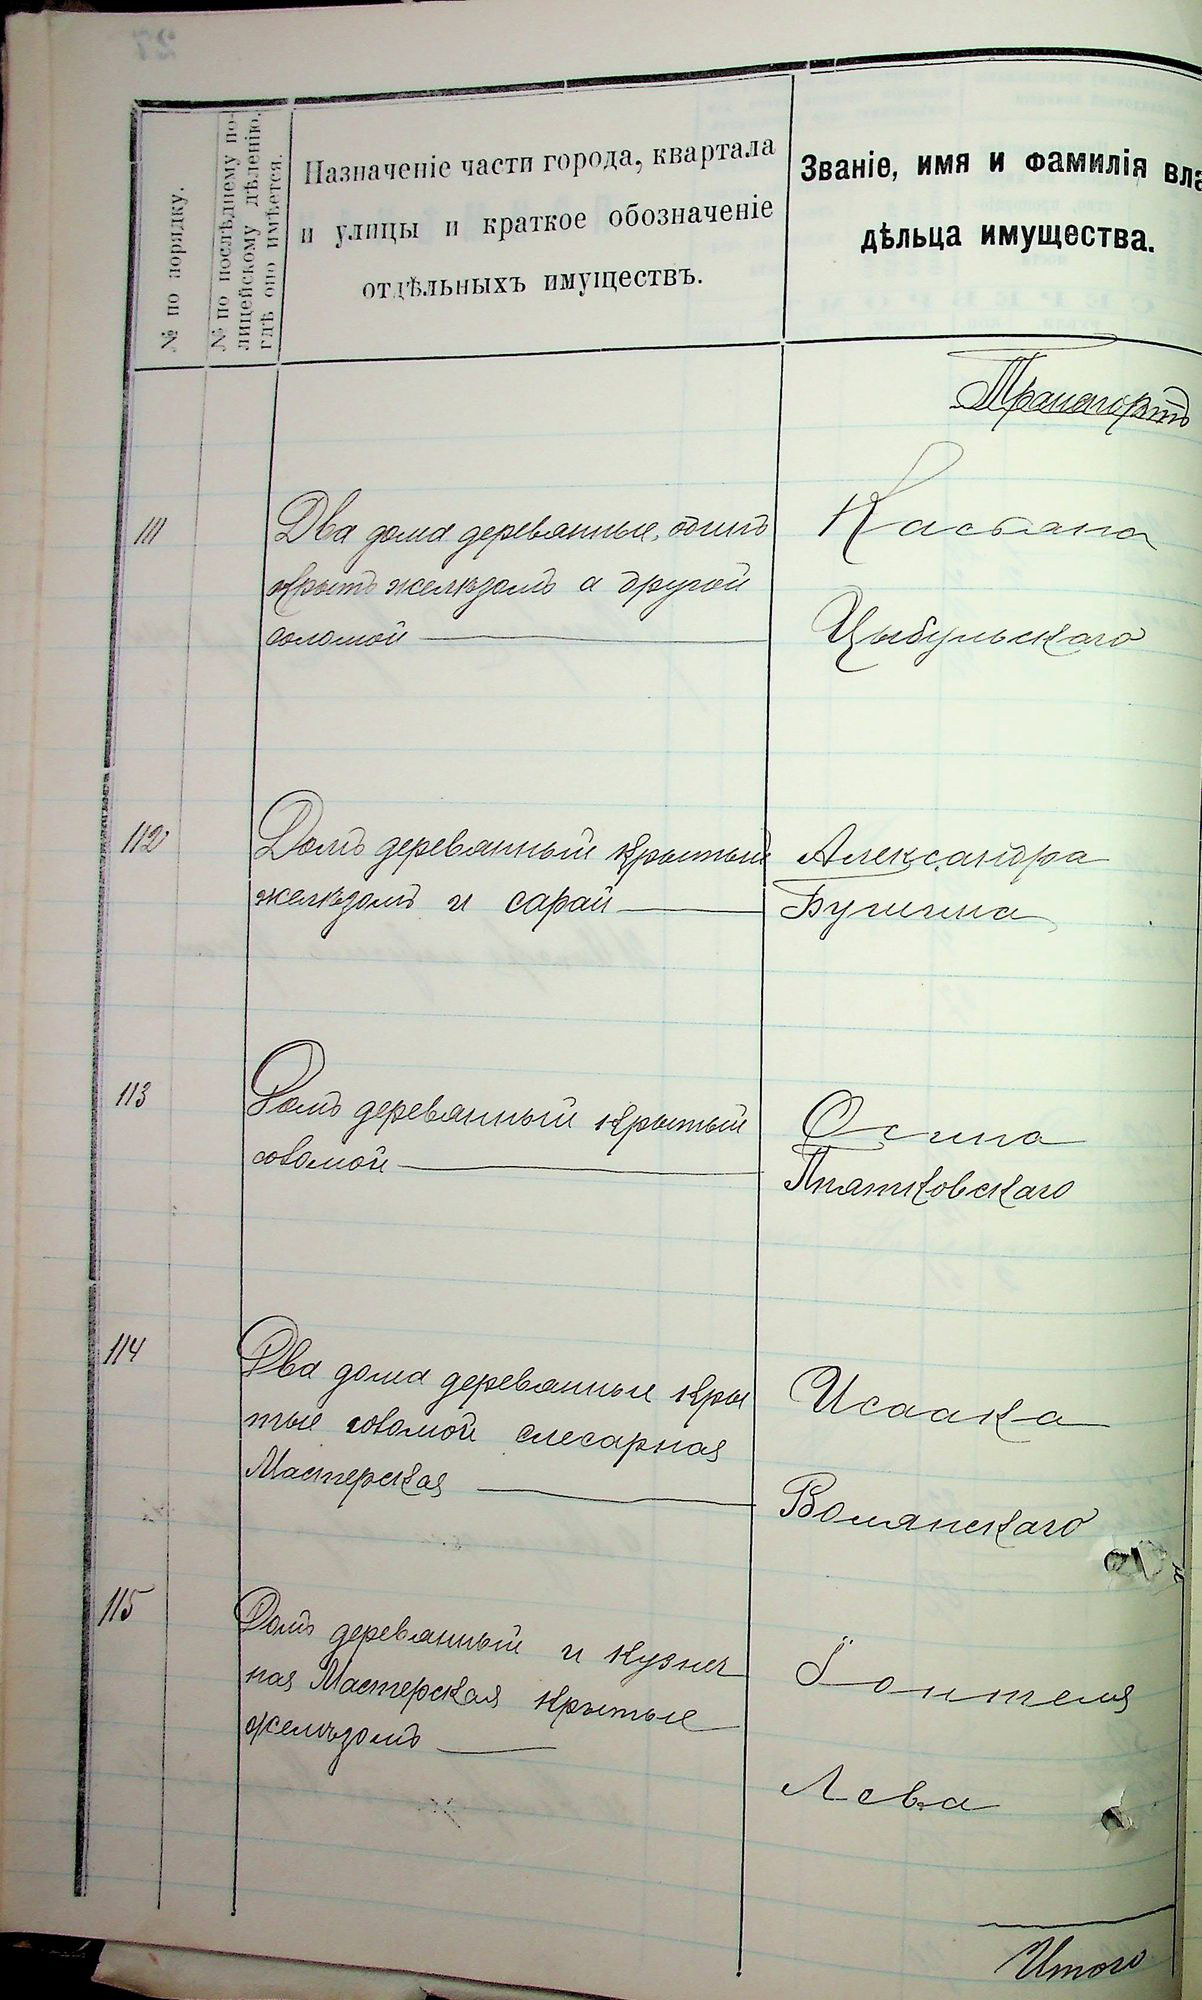 № по порядку.
№ по послѣднему по-
лицейскому дѣленію,
гдѣ оно имѣется.
Назначеніе части города, квартала
и улицы и краткое обозначеніе
отдѣльныхъ имуществъ.
Званіе, имя и фамилія вла
дѣльца имущества.
Транспортъ
111
Два дома деревянные, одинъ
крытъ желѣзомъ а другой
соломой
Касьяна
Цыбульскаго
112
Домъ деревянный крытый
желѣзомъ и сарай
Александра
113
Домъ деревянный крытый
соломой
Осипа
Пятковскаго
114
Два дома деревянные кры
тые соломой слесарная
Мастерская
Исаака
Волянскаго
115
Домъ деревянный и кузнеч
ная Мастерская крытые
желѣзомъ
Лева
Итого